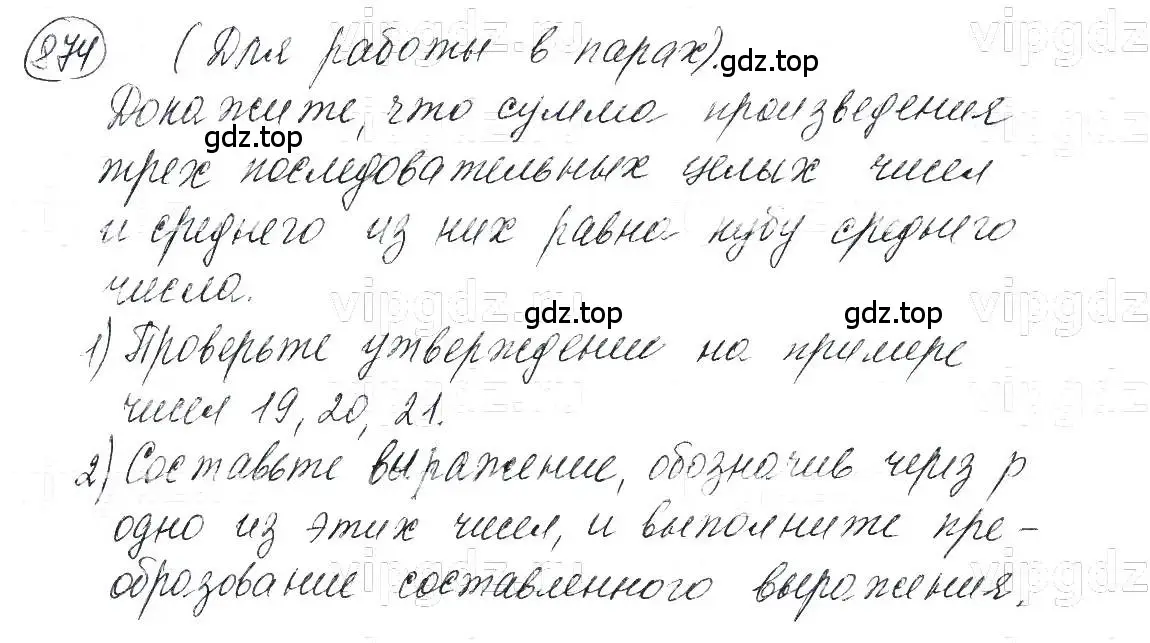 874 (Для работы в парах).
gdz.top
Докажите, что сумма произведения
gdz.top
трех последовательных целых чисел
и среднего из них равна кубу среднего
числа.
vipgdz.ru
gdz.top gdz.top
1) Проверьте утверждение на примере
чисел 19, 20, 21.
2) Составьте выражение, обозначив через p
одно из этих чисел, и выполните пре-
образование составленного выражения.
vipgdz.ru